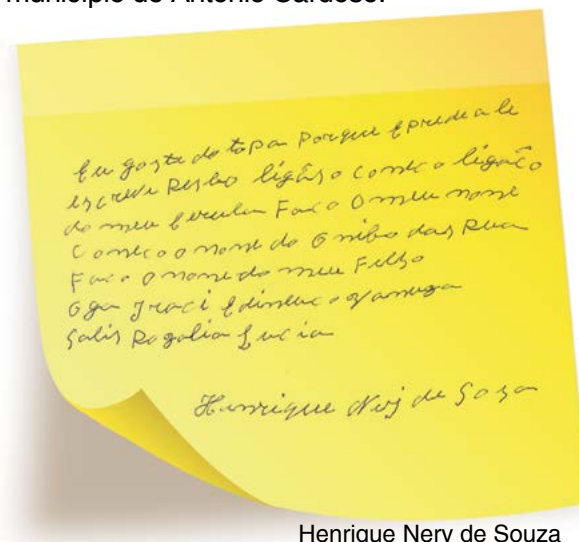 município de Antônio Cardoso.
Eu goste do topa porque eprede a le
escreve Resbo ligaso coneco ligação
do meu Faco o meu nome
Coneco o nome do onibo das Rua
Faco o nome do meu Filho
Iraci
Rogalia Lucia
Henrique Nerj de Soza
Henrique Nery de Souza